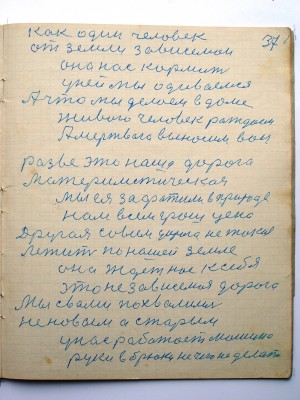 37
Как один человек
от земли зависемои
она нас кормит
у ней мы одиваемся
А что мы делоем в доме
живого человек рождаем
А мертвого выносим вон
разве это наша дорога
материлистическая
мы ея захратили в природе
нам всем грош цена
Другая совсем дорога не такая
Лежит по нашей земле
она ждет нас к себя
это не зависемоя дорога
Мы с вами похвалимы
не новаем а старым
у нас работает машина
руки в брюки нечего не делать